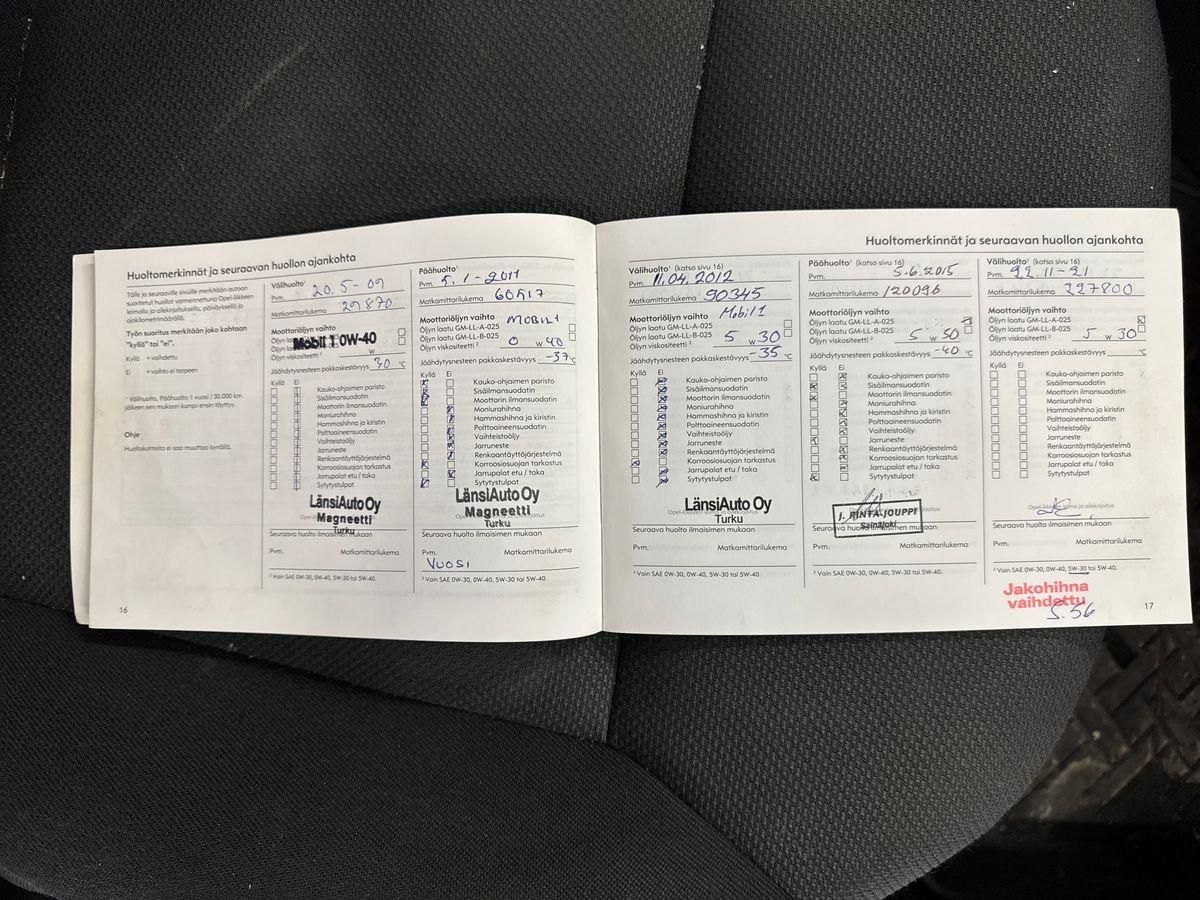 Huoltomerkinnät ja seuraavan huollon ajankohta
Tälle ja seuraaville sivuille merkitään autoon
suoritetut huollot varmennettuna Opel-liikkeen
leimalla ja allekirjoituksella, päiväyksellä ja
ajokilometrimäärällä.
Työn suoritus merkitään joko kohtaan
"kyllä" tai "ei".
Kyllä = vaihdettu
Ei = vaihto ei tarpeen
¹ Välihuolto, Päähuolto 1 vuosi / 30.000 km
jälkeen sen mukaan kumpi ensin täyttyy.
Ohje
Huoltokohteita ei saa muuttaa kynällä.
16
Välihuolto¹
Pvm. 20.5-09
Matkamittarilukema 29870
Moottoriöljyn vaihto
Öljyn
Mobil 1 0W-40
Öljyn viskositeetti ² W
Jäähdytysnesteen pakkaskestävyys 30 °C
Kyllä Ei
Kauko-ohjaimen paristo
Sisäilmansuodatin
Moottorin ilmansuodatin
Moniurahihna
Hammashihna ja kiristin
Polttoaineensuodatin
Vaihteistoöljy
Jarruneste
Renkaantäyttöjärjestelmä
Korroosiosuojan tarkastus
Jarrupalat etu / taka
Sytytystulpat
LänsiAuto Oy
Magneetti
Turku
Seuraava huolto ilmaisimen mukaan
Pvm. Matkamittarilukema
² Vain SAE 0W-30, 0W-40, 5W-30 tai 5W-40.
Päähuolto¹
Pvm. 5.1-2011
Matkamittarilukema 60517
Moottoriöljyn vaihto MOBIL 1
Öljyn laatu GM-LL-A-025
Öljyn laatu GM-LL-B-025
Öljyn viskositeetti ² 0 W 40
Jäähdytysnesteen pakkaskestävyys -37 °C
Kyllä Ei
Kauko-ohjaimen paristo
Sisäilmansuodatin
Moottorin ilmansuodatin
Moniurahihna
Hammashihna ja kiristin
Polttoaineensuodatin
Vaihteistoöljy
Jarruneste
Renkaantäyttöjärjestelmä
Korroosiosuojan tarkastus
Jarrupalat etu / taka
Sytytystulpat
LänsiAuto Oy
Magneetti
Turku
Seuraava huolto ilmaisimen mukaan
Pvm. Matkamittarilukema
VUOSI
² Vain SAE 0W-30, 0W-40, 5W-30 tai 5W-40.
Huoltomerkinnät ja seuraavan huollon ajankohta
Välihuolto¹ (katso sivu 16)
Pvm. 11.04.2012
Matkamittarilukema 90345
Moottoriöljyn vaihto Mobil 1
Öljyn laatu GM-LL-A-025
Öljyn laatu GM-LL-B-025
Öljyn viskositeetti ² 5 W 30
Jäähdytysnesteen pakkaskestävyys -35 °C
Kyllä Ei
Kauko-ohjaimen paristo
Sisäilmansuodatin
Moottorin ilmansuodatin
Moniurahihna
Hammashihna ja kiristin
Polttoaineensuodatin
Vaihteistoöljy
Jarruneste
Renkaantäyttöjärjestelmä
Korroosiosuojan tarkastus
Jarrupalat etu / taka
Sytytystulpat
LänsiAuto Oy
Turku
Seuraava huolto ilmaisimen mukaan
Pvm. Matkamittarilukema
² Vain SAE 0W-30, 0W-40, 5W-30 tai 5W-40.
Päähuolto¹ (katso sivu 16)
Pvm. 5.6.2015
Matkamittarilukema 120096
Moottoriöljyn vaihto
Öljyn laatu GM-LL-A-025
Öljyn laatu GM-LL-B-025
Öljyn viskositeetti ² 5 W 30
Jäähdytysnesteen pakkaskestävyys -40 °C
Kyllä Ei
Kauko-ohjaimen paristo
Sisäilmansuodatin
Moottorin ilmansuodatin
Moniurahihna
Hammashihna ja kiristin
Polttoaineensuodatin
Vaihteistoöljy
Jarruneste
Renkaantäyttöjärjestelmä
Korroosiosuojan tarkastus
Jarrupalat etu / taka
Sytytystulpat
J. RINTA-JOUPPI
Seinäjoki
Seuraava huolto ilmaisimen mukaan
Pvm. Matkamittarilukema
² Vain SAE 0W-30, 0W-40, 5W-30 tai 5W-40.
Välihuolto¹ (katso sivu 16)
Pvm. 22.11-21
Matkamittarilukema 227800
Moottoriöljyn vaihto
Öljyn laatu GM-LL-A-025
Öljyn laatu GM-LL-B-025
Öljyn viskositeetti ² 5 W 30
Jäähdytysnesteen pakkaskestävyys °C
Kyllä Ei
Kauko-ohjaimen paristo
Sisäilmansuodatin
Moottorin ilmansuodatin
Moniurahihna
Hammashihna ja kiristin
Polttoaineensuodatin
Vaihteistoöljy
Jarruneste
Renkaantäyttöjärjestelmä
Korroosiosuojan tarkastus
Jarrupalat etu / taka
Sytytystulpat
Opel-liikkeen leima ja allekirjoitus
Seuraava huolto ilmaisimen mukaan
Pvm. Matkamittarilukema
² Vain SAE 0W-30, 0W-40, 5W-30 tai 5W-40.
Jakohihna
vaihdettu
S.56
17